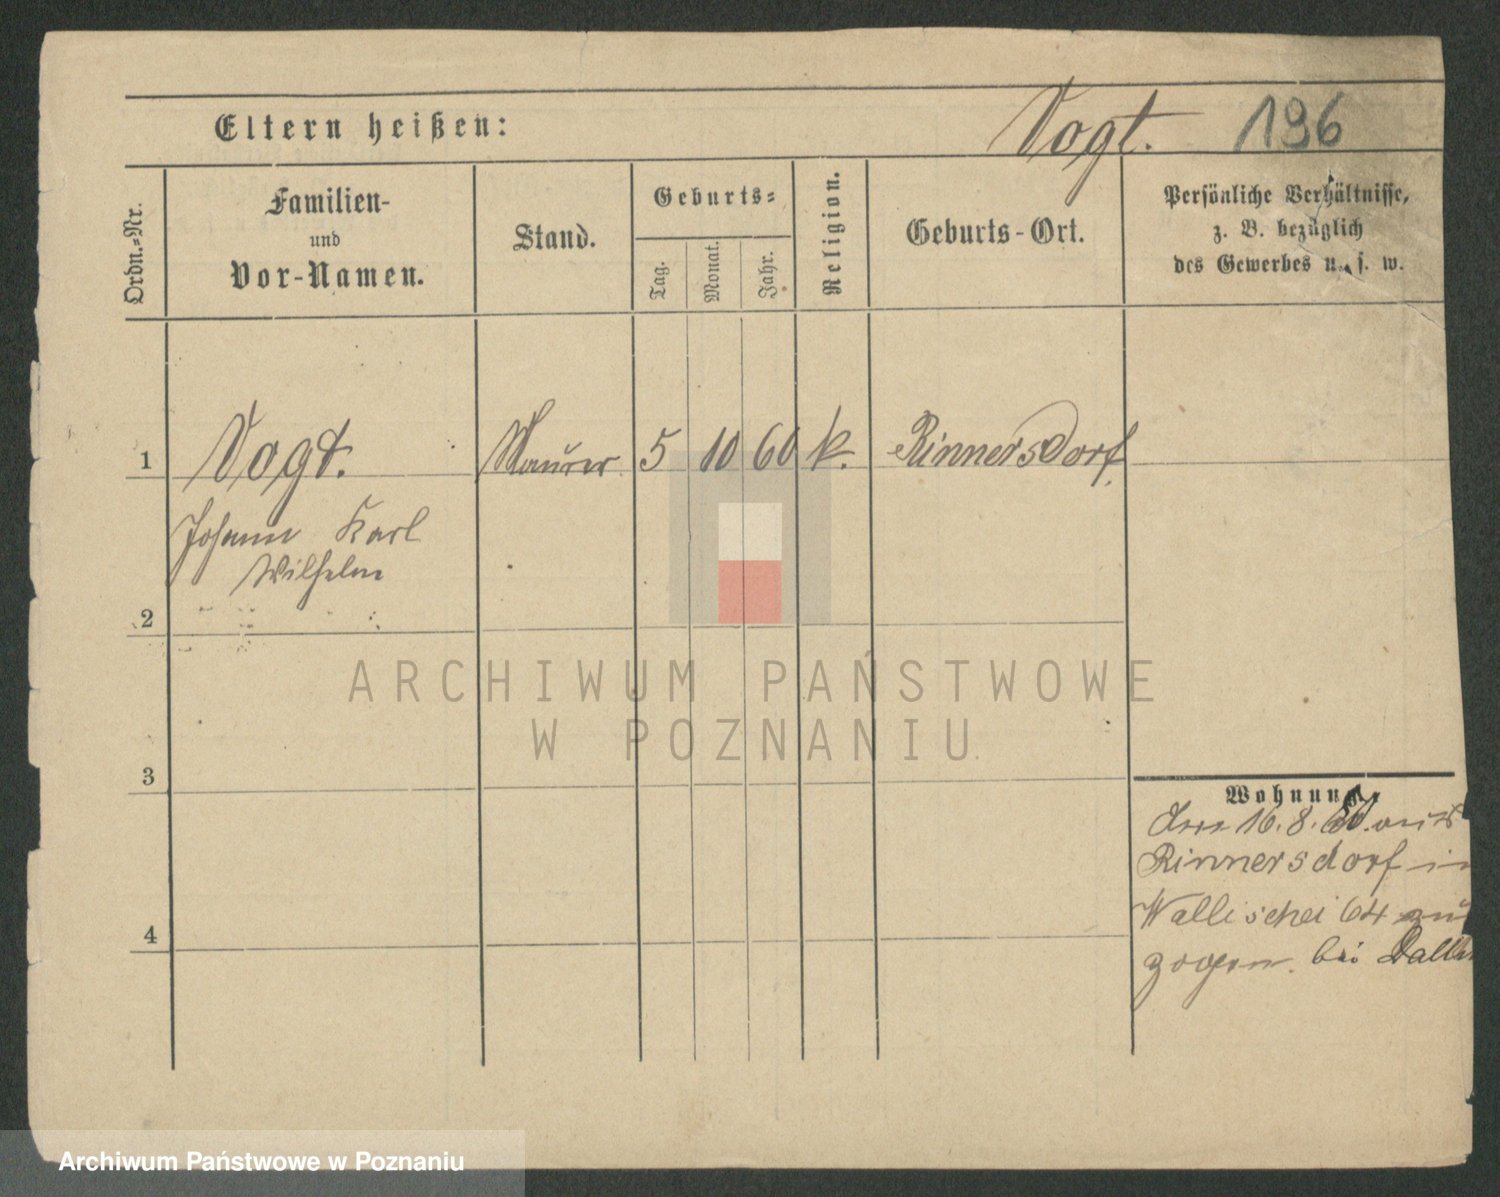 Eltern heißen:
Vogt.
196
Ordn.-Nr.
Familien-
und
Vor-Namen.
Stand.
Geburts-
Tag.
Monat.
Jahr.
Religion.
Geburts-Ort.
Persönliche Verhältnisse,
z. B. bezüglich
des Gewerbes u. s. w.
1
Vogt.
Maurer
5
10
60
k.
Rinnersdorf
Johann Karl
Wilhelm
2
3
4
Wohnung.
16. 8. aus
Rinnersdorf in
Wallischei 64 zu
zogen. bei
ARCHIWUM PAŃSTWOWE
W POZNANIU
Archiwum Państwowe w Poznaniu